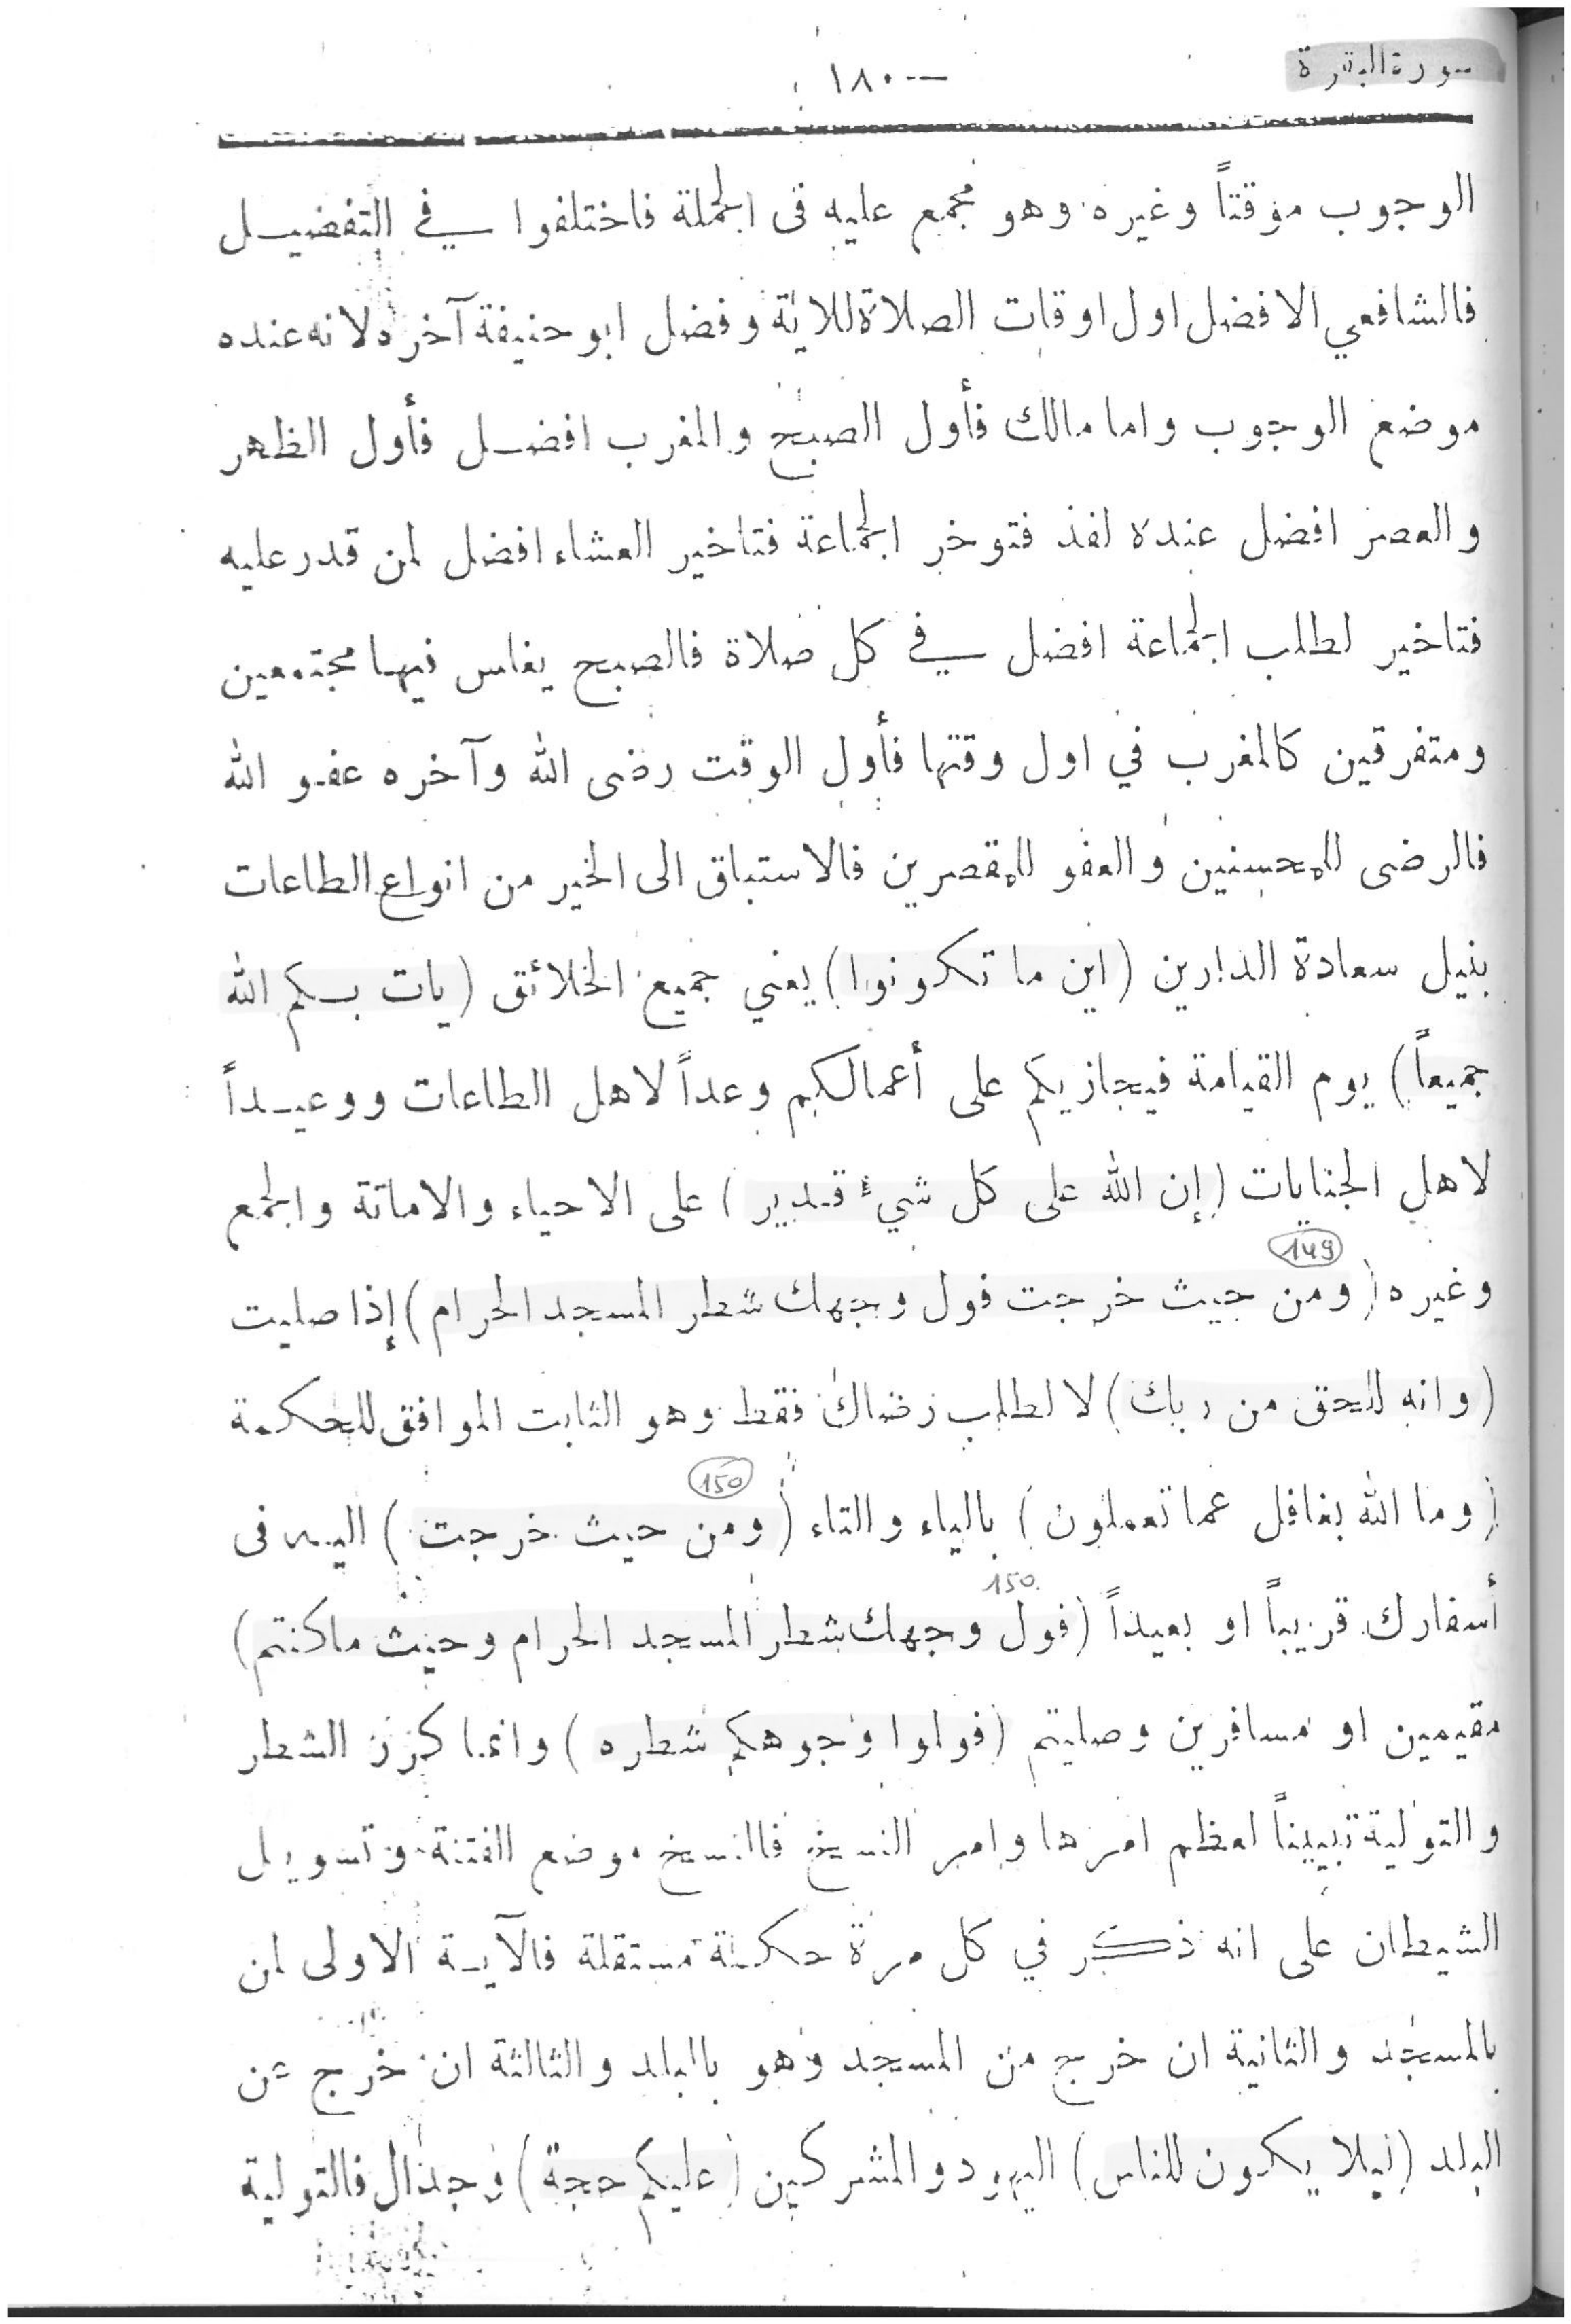 سورة البقرة
١٨٠ —
الوجوب موقتاً وغيره وهو مجمع عليه في الجملة فاختلفوا في التفضيل
فالشافعي الافضل اول اوقات الصلاة للاية وفضل ابو حنيفة آخره لانه عنده
موضع الوجوب واما مالك فأول الصبح والمغرب افضل فأول الظهر
والعصر افضل عنده لفذ فتوخر الجماعة فتاخير العشاء افضل لمن قدر عليه
فتاخير لطلب الجماعة افضل في كل صلاة فالصبح يغلس فيها مجتمعين
ومتفرقين كالمغرب في اول وقتها فأول الوقت رضى الله وآخره عفو الله
فالرضى للمحسنين والعفو للمقصرين فالاستباق الى الخير من انواع الطاعات
بنيل سعادة الدارين (اين ما تكونوا) يعني جميع الخلائق (يات بكم الله
جميعاً) يوم القيامة فيجازيكم على أعمالكم وعداً لاهل الطاعات ووعيداً
لاهل الجنايات (إن الله على كل شيء قدير) على الاحياء والاماتة والجمع
149
وغيره (ومن حيث خرجت فول وجهك شطر المسجد الحرام) إذا صليت
(وانه للحق من ربك) لا لطلب رضاك فقط وهو الثابت الموافق للحكمة
150
(وما الله بغافل عما تعملون) بالياء والتاء (ومن حيث خرجت) اليه في
150
أسفارك قريباً او بعيداً (فول وجهك شطر المسجد الحرام وحيث ما كنتم)
مقيمين او مسافرين وصليتم (فولوا وجوهكم شطره) وانما كرر الشطر
والتولية تبييناً لعظم امرها وامر النسخ فالنسخ موضع الفتنة وتسويل
الشيطان على انه ذكر في كل مرة حكمة مستقلة فالآية الاولى لمن
بالمسجد والثانية ان خرج من المسجد وهو بالبلد والثالثة ان خرج عن
البلد (ليلا يكون للناس) اليهود والمشركين (عليكم حجة) وجدال فالتولية